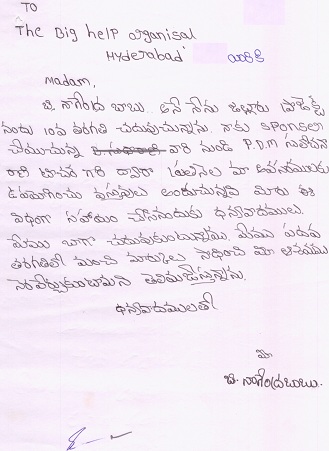 TO
The Big help organisal
Hyderabad యారికి
Madam,
బి. నాగేంద్ర బాబు. అనే నేను జిల్లారు ప్రాజెక్ట్
నందు 10వ తరగతి చదువుచున్నాను. నాకు sponser
చేయుచున్న వారి నుండి P.D.M సులోచనా
రాణి టీచర్ గారి ద్వారా మా అవసరములకు
ఉపయోగించు వస్తువులు అందుచున్నవి మీరు ఈ
విధంగా సహాయం చేసినందుకు ధన్యవాదములు.
మేము బాగా చదువుకుంటున్నాము. మేము పదవ
తరగతిలో మంచి మార్కులు సాధించి మా ఆశయము
నెరవేర్చుకుంటామని తెలియజేస్తున్నాను.
ధన్యవాదములతో
మీ
బి. నాగేంద్రబాబు.